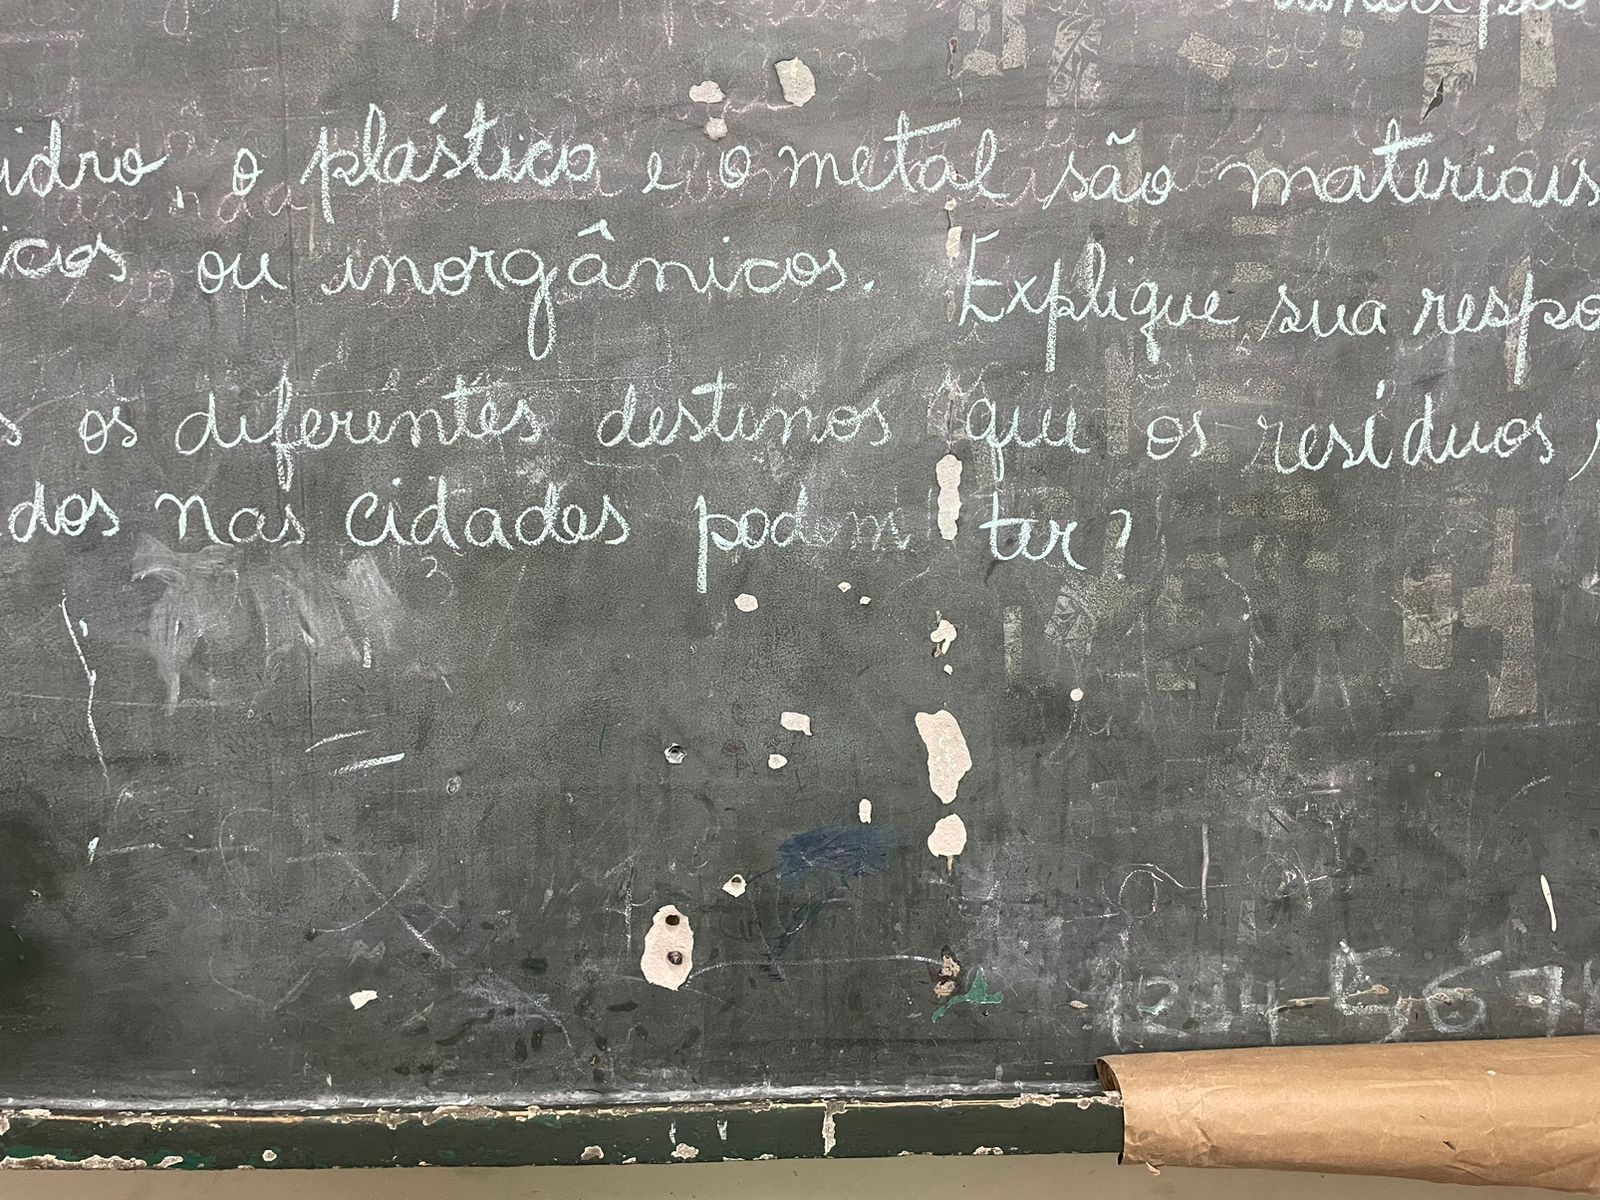 idro, o plástico e o metal são materiais
icos ou inorgânicos. Explique sua respo
s os diferentes destinos que os resíduos
dos nas cidades podem ter?
1234567